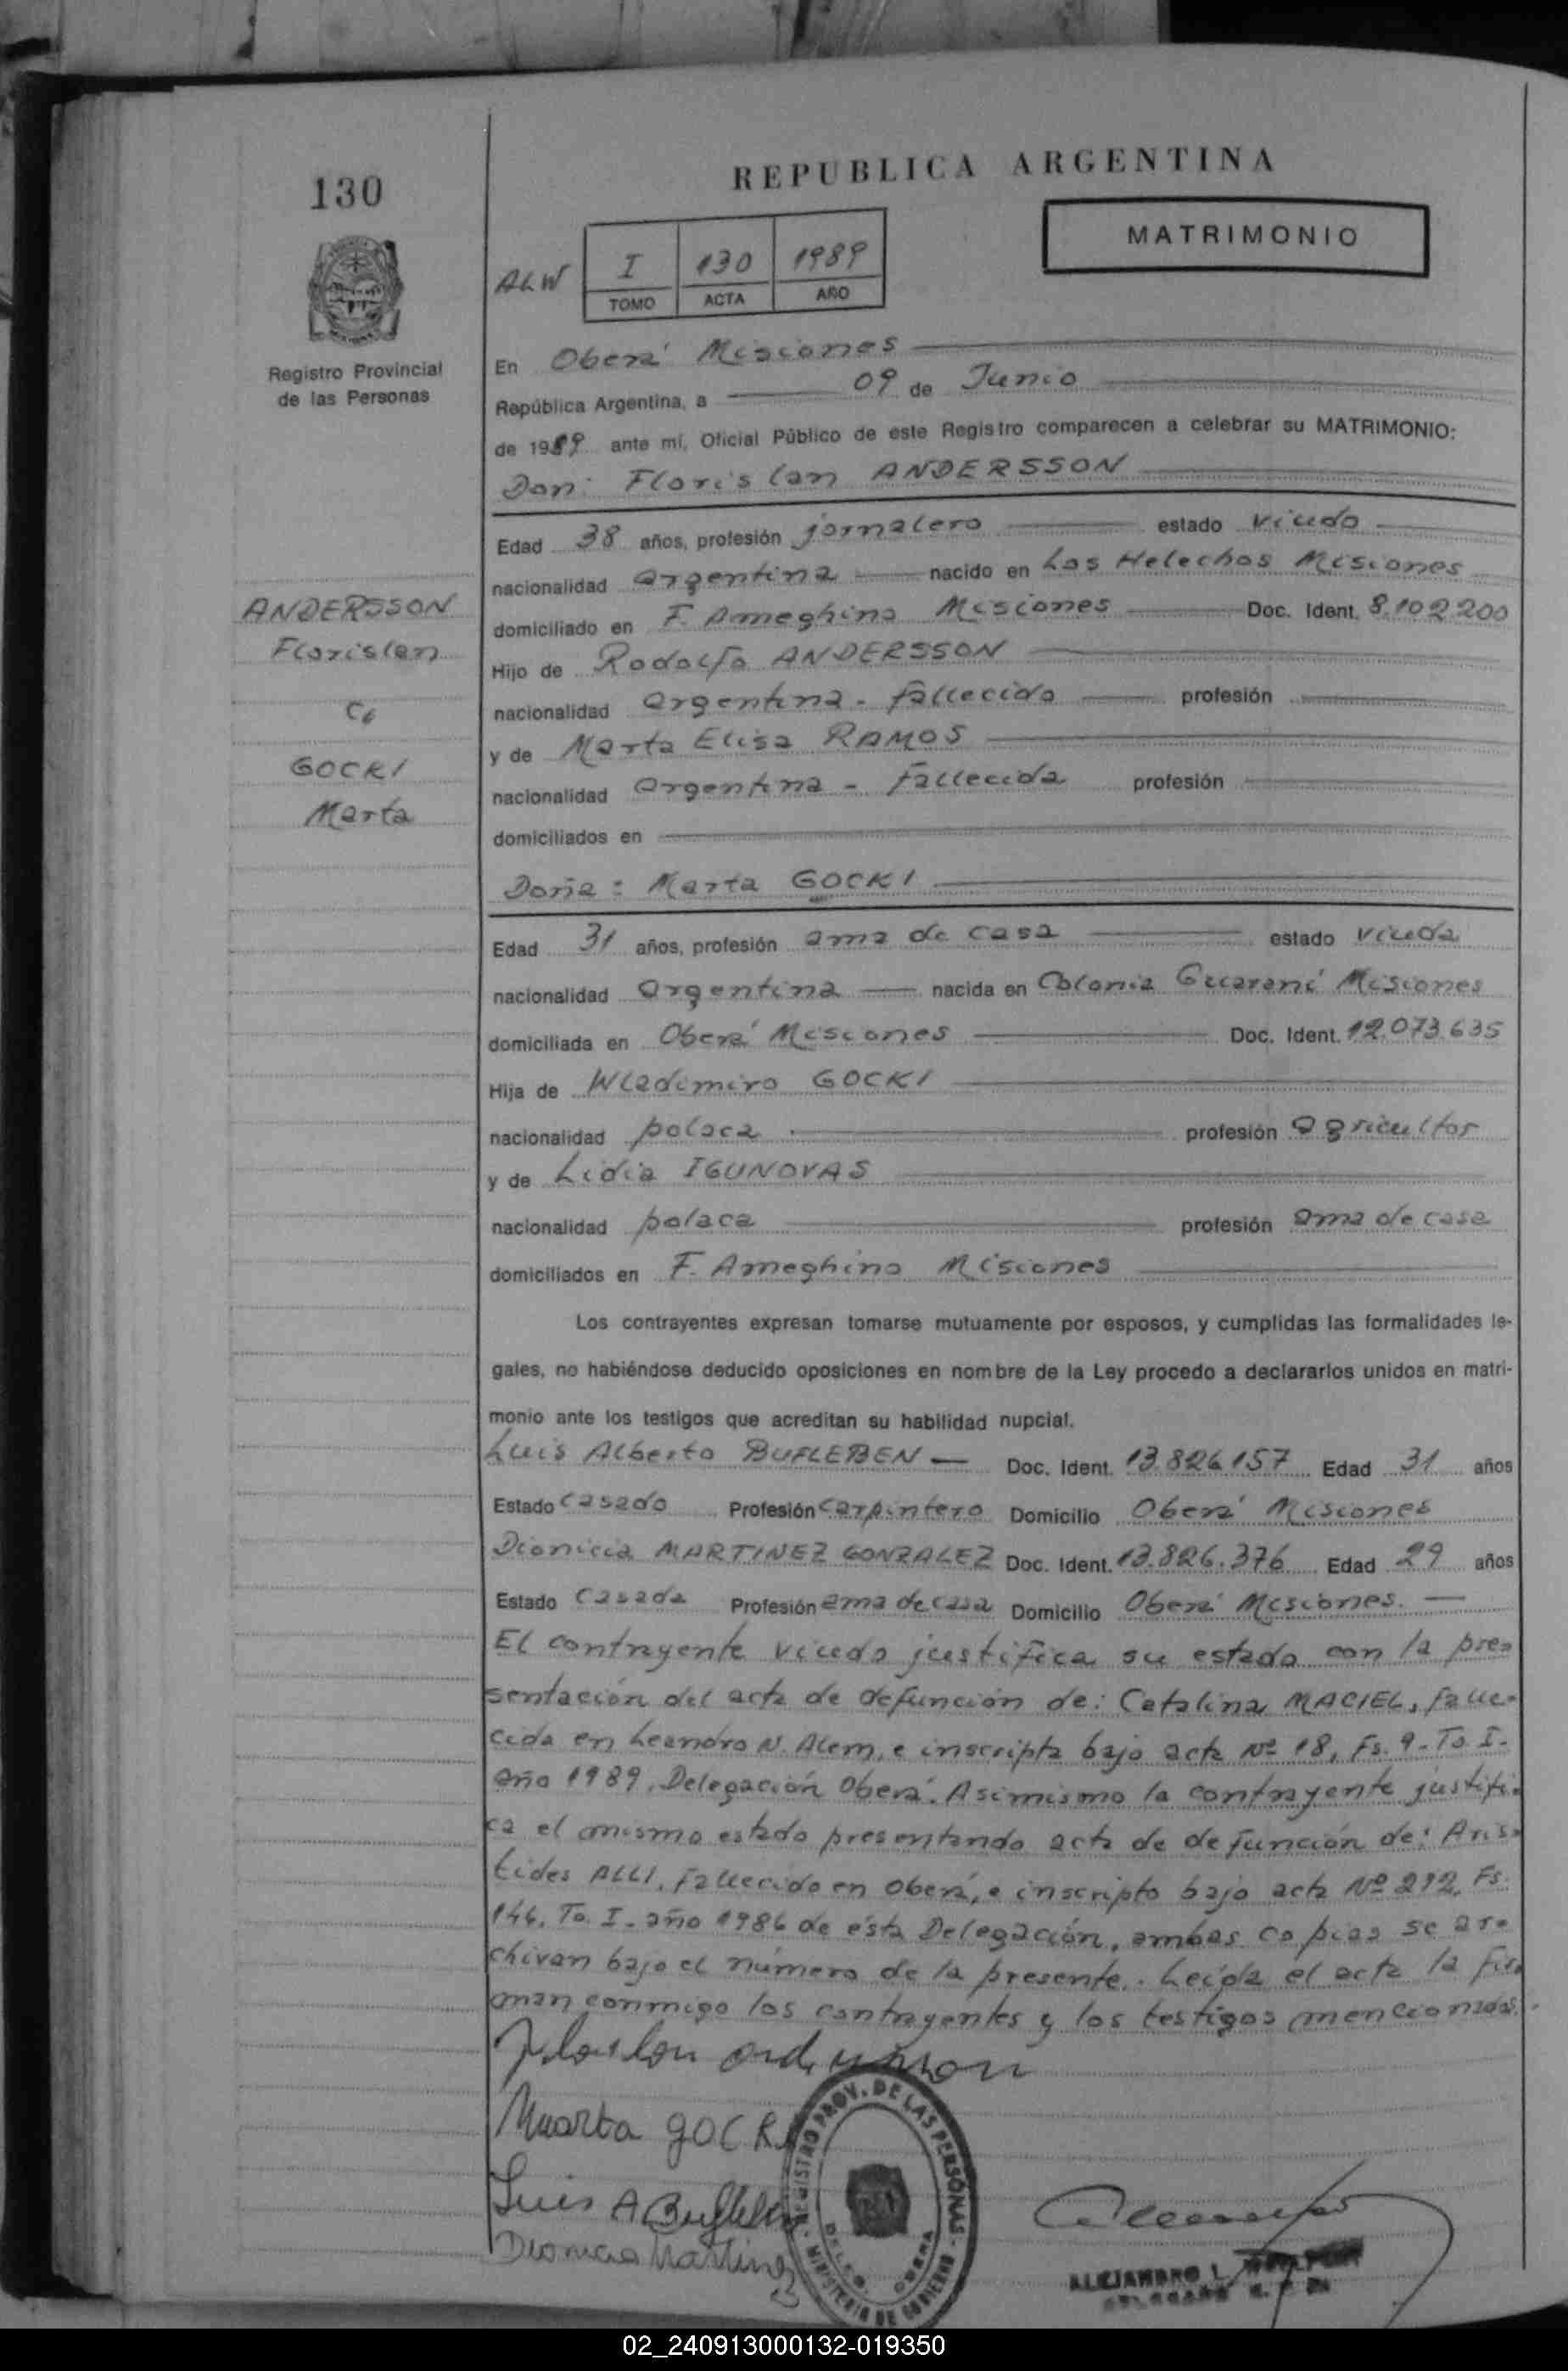 130
REPUBLICA ARGENTINA
MATRIMONIO
ALW
I 130 1989
TOMO ACTA AÑO
Registro Provincial
de las Personas
En Oberá Misiones
República Argentina, a 09 de Junio
de 1989 ante mí, Oficial Público de este Registro comparecen a celebrar su MATRIMONIO:
Don: Florislan ANDERSSON
Edad 38 años, profesión jornalero estado viudo
nacionalidad argentina nacido en Los Helechos Misiones
domiciliado en F. Ameghino Misiones Doc. Ident. 8.102.200
Hijo de Rodolfo ANDERSSON
nacionalidad argentina - fallecido profesión
y de Marta Elisa RAMOS
nacionalidad argentina - fallecida profesión
domiciliados en
ANDERSSON
Florislan
c/
GOCKI
Marta
Doña: Marta GOCKI
Edad 31 años, profesión ama de casa estado viuda
nacionalidad argentina nacida en Colonia Guaraní Misiones
domiciliada en Oberá Misiones Doc. Ident. 12.073.635
Hija de Wladimiro GOCKI
nacionalidad polaca profesión agricultor
y de Lidia IGUNOVAS
nacionalidad polaca profesión ama de casa
domiciliados en F. Ameghino Misiones
Los contrayentes expresan tomarse mutuamente por esposos, y cumplidas las formalidades le-
gales, no habiéndose deducido oposiciones en nombre de la Ley procedo a declararlos unidos en matri-
monio ante los testigos que acreditan su habilidad nupcial.
Luis Alberto BUFLEBEN Doc. Ident. 13.826.157 Edad 31 años
Estado casado Profesión carpintero Domicilio Oberá Misiones
Dionicia MARTINEZ GONZALEZ Doc. Ident. 13.826.376 Edad 29 años
Estado casada Profesión ama de casa Domicilio Oberá Misiones.
El contrayente viudo justifica su estado con la pre-
sentación del acta de defunción de: Catalina MACIEL, falle-
cida en Leandro N. Alem, e inscripta bajo acta Nº 18, Fs. 9. To I.
año 1989, Delegación Oberá. Asimismo la contrayente justifi-
ca el mismo estado presentando acta de defunción de: Aris-
tides ALLI, fallecido en Oberá, e inscripto bajo acta Nº 292, Fs.
146, To. I. año 1986 de ésta Delegación, ambas copias se ar-
chivan bajo el número de la presente. Leída el acta la fir-
man conmigo los contrayentes y los testigos mencionados.
Florislan Andersson
Marta GOCKI
Luis A Bufleben
Dionicia Martinez
REGISTRO PROV. DE LAS PERSONAS
MINISTERIO DE GOBIERNO
DELEG. OBERA
ALEJANDRO L.
02_240913000132-019350